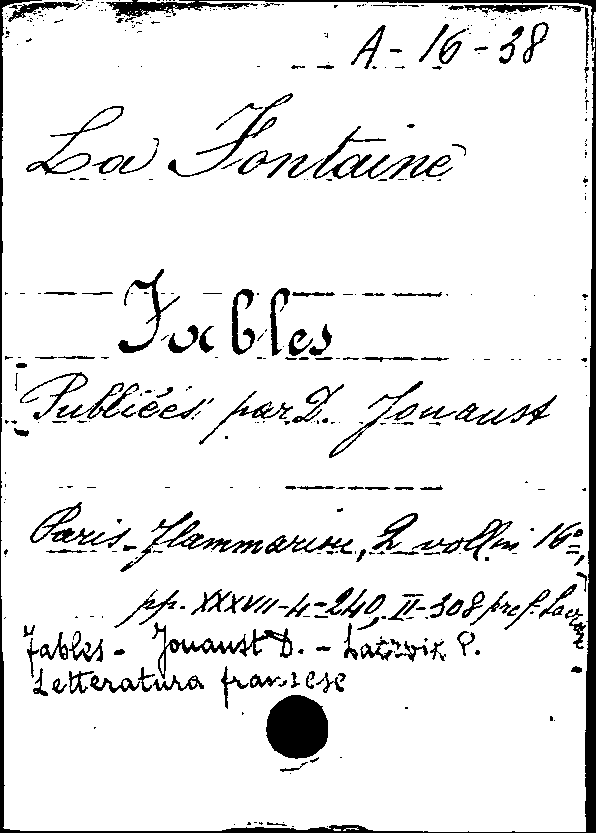 A-16-38
La Fontaine
Fables
Publiées par D. Jouaust
Paris, Flammarion, 2 voll. in 16º,
pp. XXXVII-4-240, II-308 pref. Lacroix
Fables - Jouaust D. - Lacroix P.
Letteratura francese